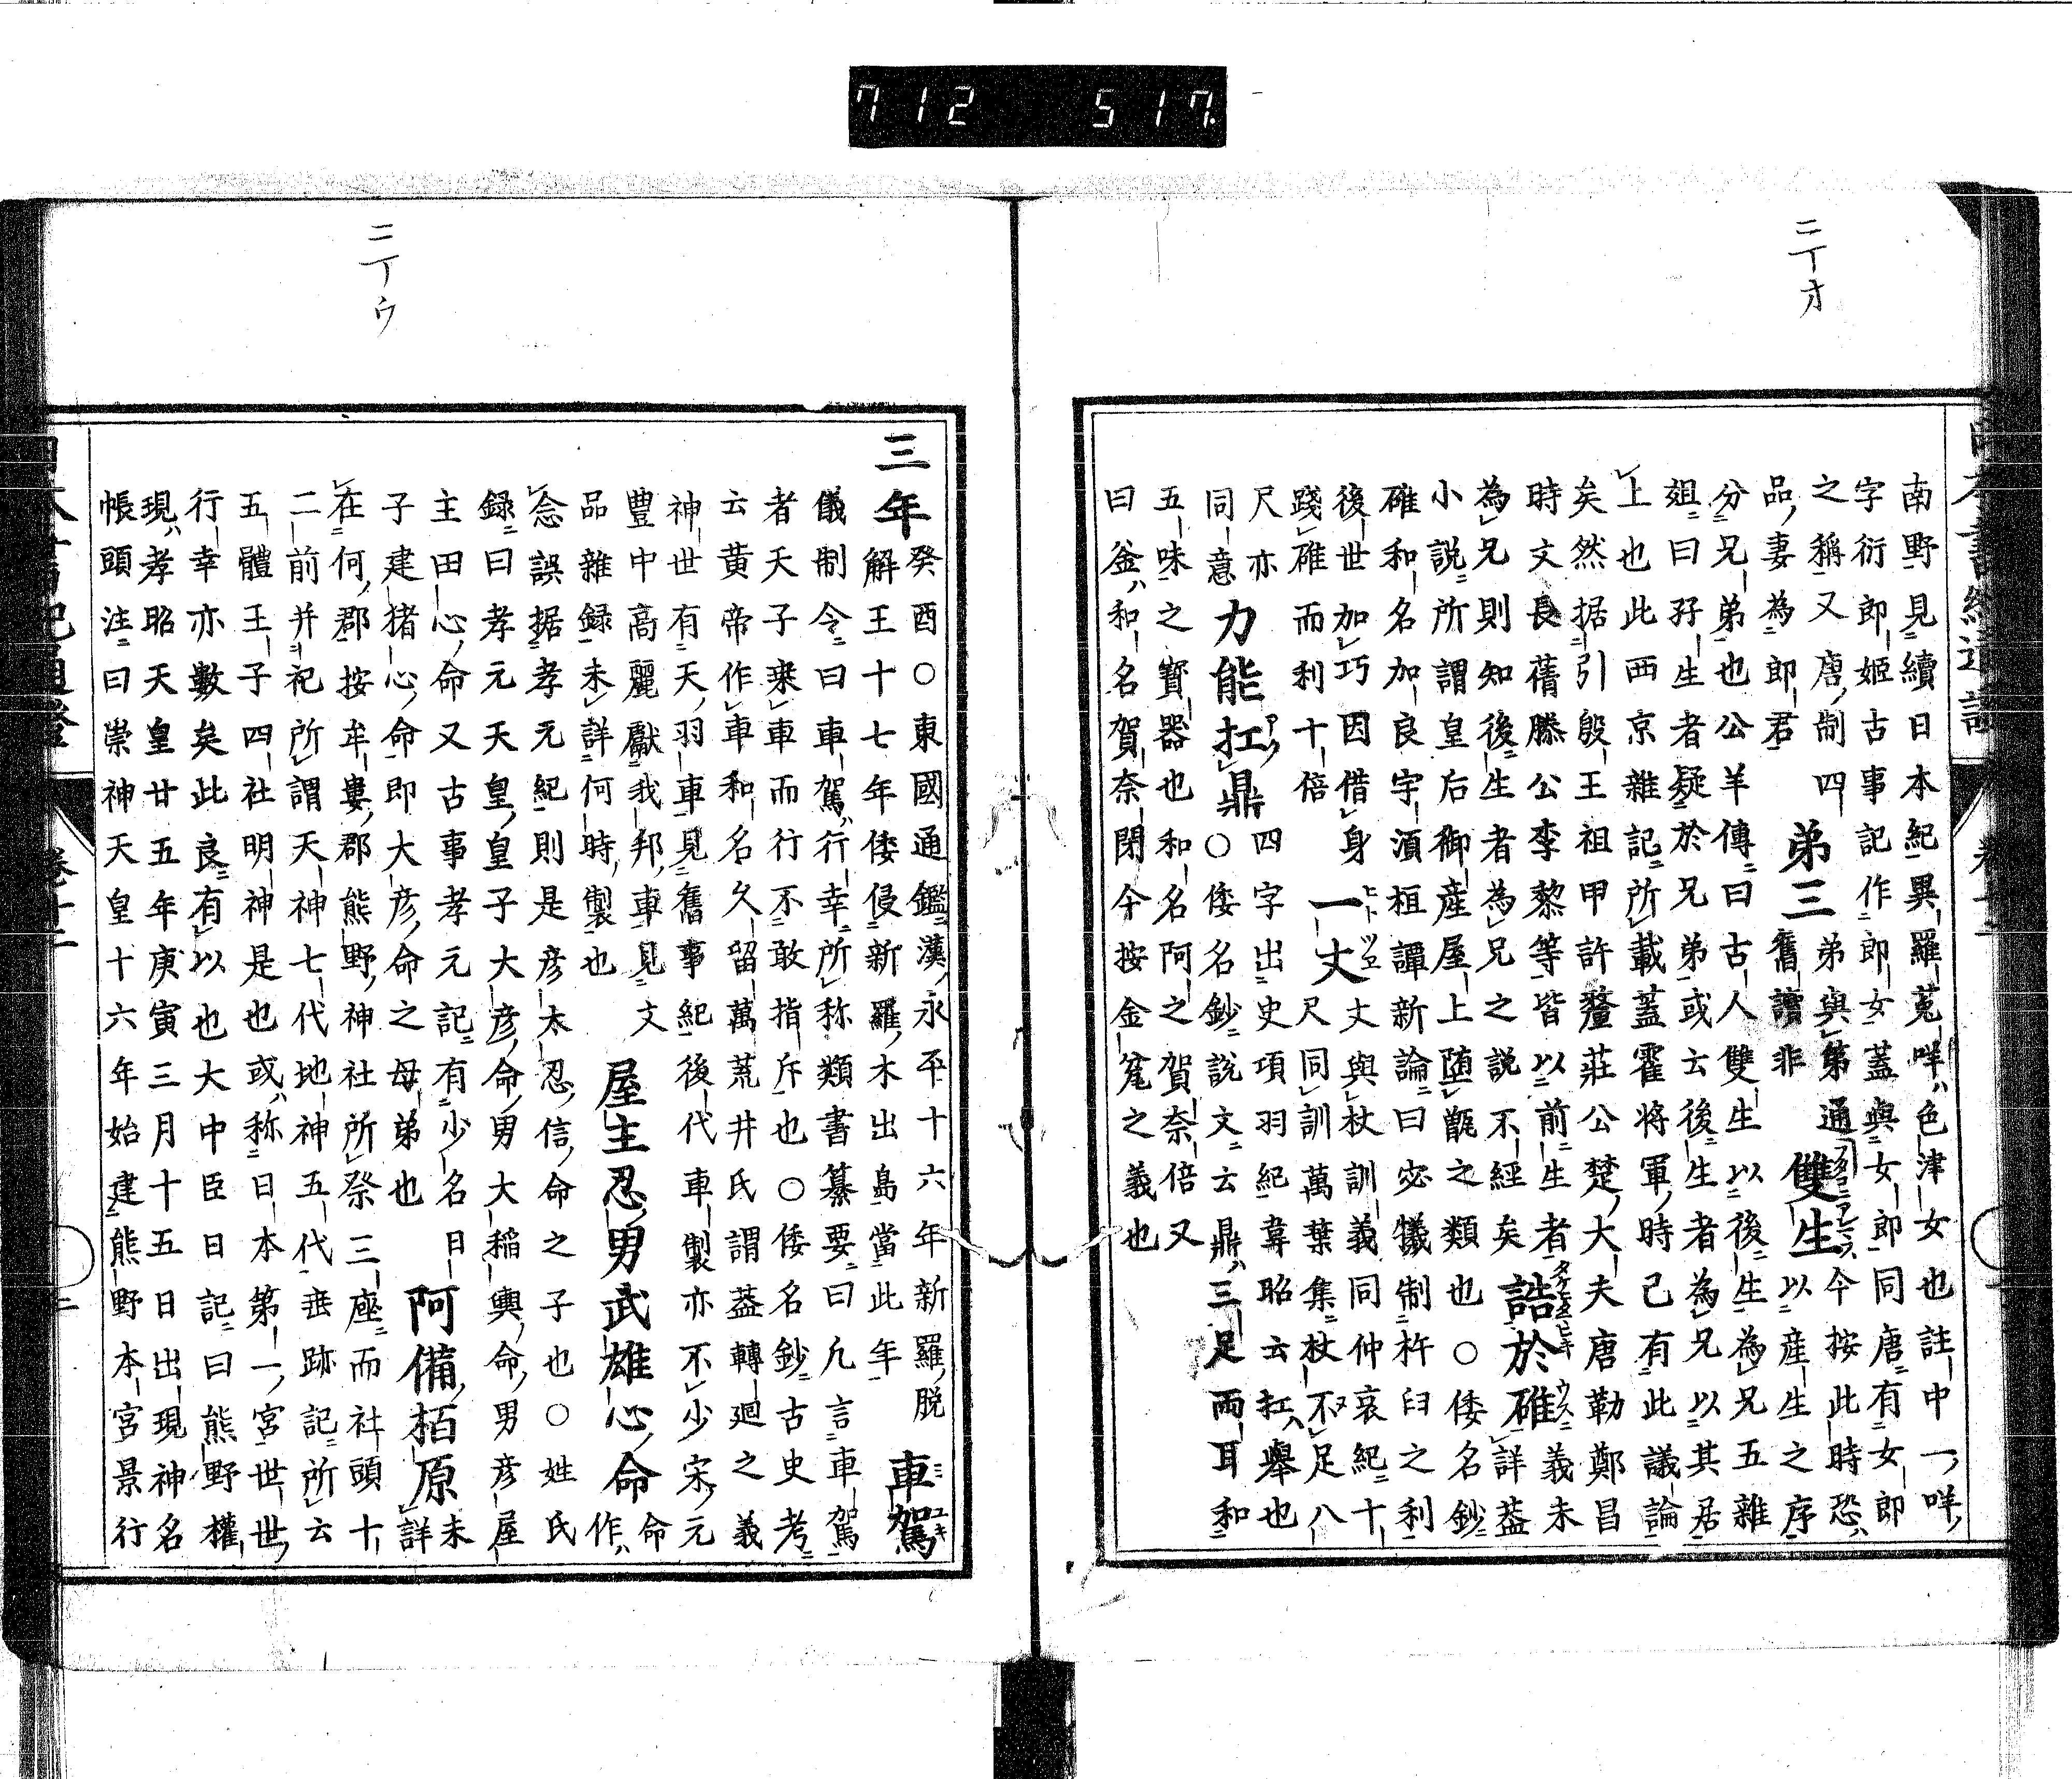 712 517
二丁オ
南野見續日本紀異羅菟咩ハ色津女也註中一咩
字衍郎姬古事記作郎女蓋與女郎同唐有女郎
之稱又唐制四弟三弟與第通今按此時恐ハ
品妻為郎君舊讀非雙生以産生之序
分兄弟也公羊傳曰古人雙生以後生為兄五雜
俎曰孖生者疑於兄弟或云後生者為兄以其居
上也此西京雜記所載蓋霍将軍時已有此議論
矣然据引殷王祖甲許釐莊公楚大夫唐勒鄭昌
時文長蒨滕公李黎等皆以前生者誥於碓義未
為兄則知後生者為兄之説不經矣詳蓋
小説所謂皇后御産屋上堕甑之類也○倭名鈔
碓和名加良宇湏桓譚新論曰宓犧制杵臼之利
後世加巧因借身一丈丈與杖訓義同仲哀紀十
踐碓而利十倍尺同訓萬葉集杖不足八
尺亦力能扛鼎四字出史項羽紀韋昭云扛ハ舉也
同意○倭名鈔説文云鼎ハ三足両耳和
五味之寳器也和名阿之賀奈倍又
曰釜ハ和名賀奈閉今按金䇪之義也
二丁ウ
三年癸酉○東國通鑑漢永平十六年新羅脱車駕
解王十七年倭侵新羅木出島當此年
儀制令曰車駕行幸所称類書纂要曰凡言車駕
者天子乗車而行不敢指斥也○倭名鈔古史考
云黄帝作車和名久留萬荒井氏謂蓋轉廻之義
神世有天羽車見舊事紀後代車製亦不少宋元
豊中高麗獻我邦車見文屋主忍男武雄心命命
品雜録未詳何時製也作ハ
念誤据孝元紀則是彦太忍信命之子也○姓氏
録曰孝元天皇皇子大彦命男大稲輿命男彦屋
主田心命又古事孝元記有少名日阿備柏原未
子建猪心命即大彦命之母弟也詳
在何郡按牟婁郡熊野神社所祭三座而社頭十
二前并祀所謂天神七代地神五代垂跡記所云
五體王子四社明神是也或ハ称日本第一宮世世
行幸亦數矣此良有以也大中臣日記曰熊野權
現ハ孝昭天皇廿五年庚寅三月十五日出現神名
帳頭注曰崇神天皇十六年始建熊野本宮景行